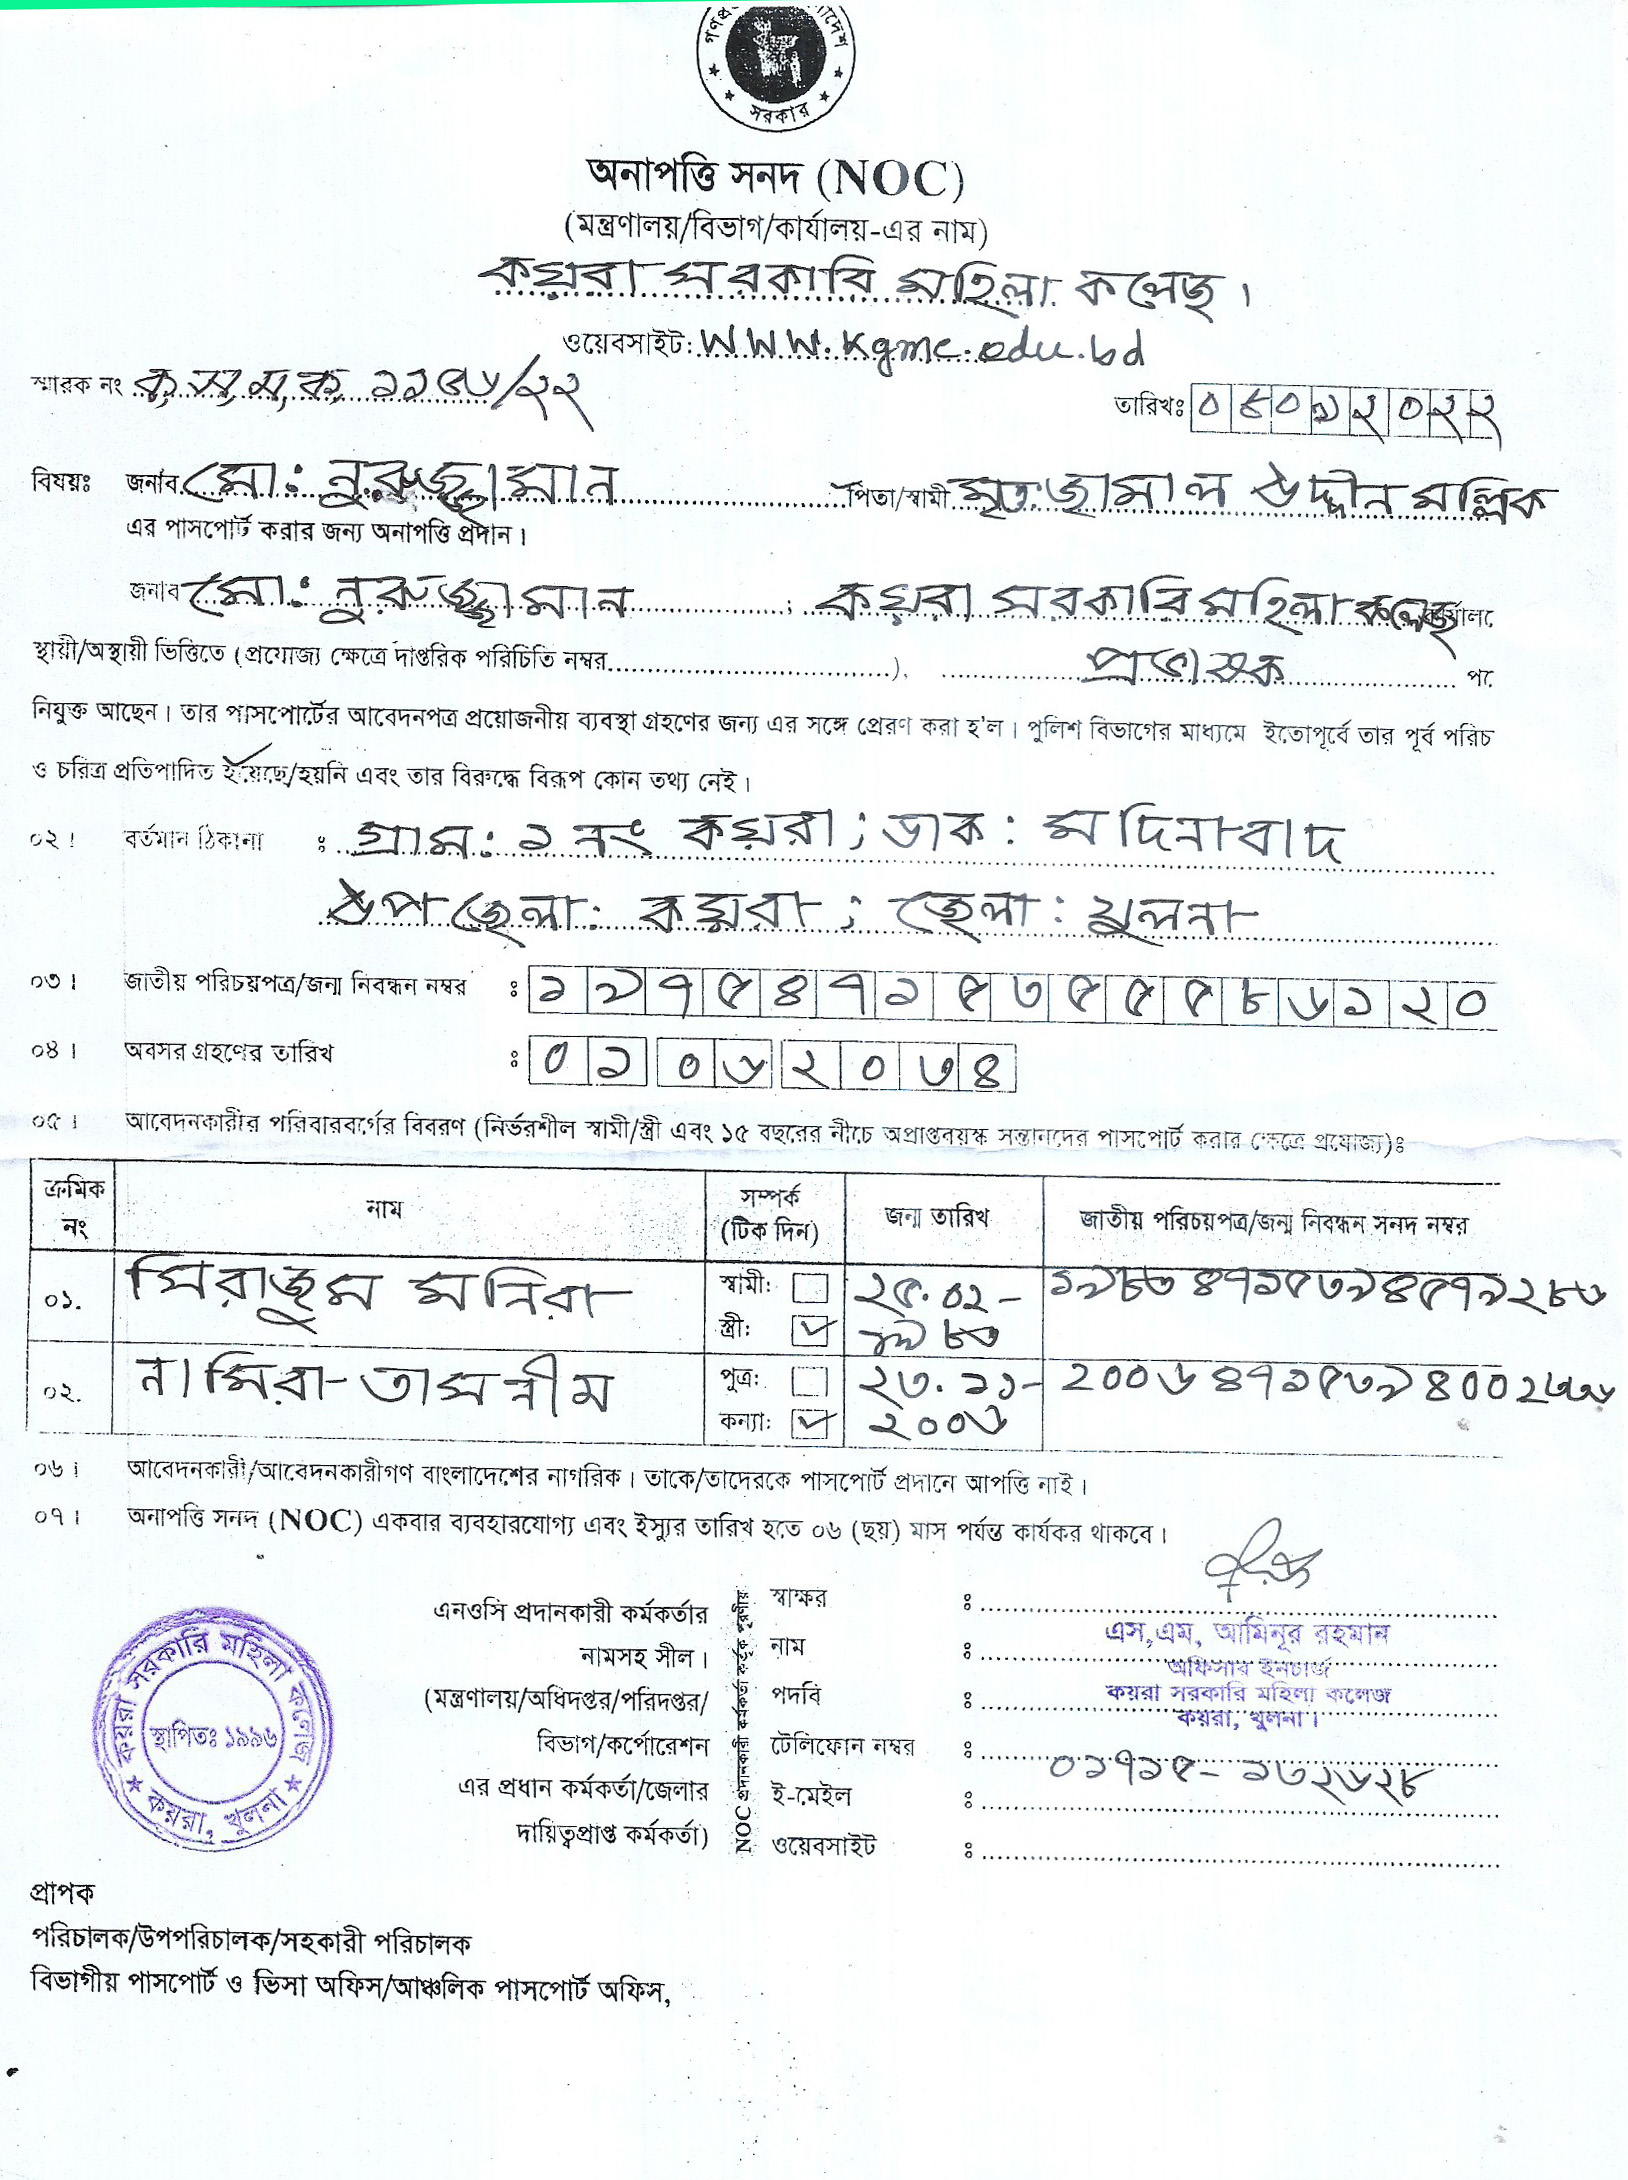 সরকার
অনাপত্তি সনদ (NOC)
(মন্ত্রণালয়/বিভাগ/কার্যালয়-এর নাম)
কয়রা সরকারি মহিলা কলেজ।
ওয়েবসাইট: www.kgmc.edu.bd
স্মারক নং ক,স,ম,ক, /২২
তারিখঃ
বিষয়ঃ জনাব মো: নুরুজ্জামান পিতা/স্বামী মৃত: জামাল উদ্দীন মল্লিক
এর পাসপোর্ট করার জন্য অনাপত্তি প্রদান।
জনাব মো: নুরুজ্জামান ; কয়রা সরকারি মহিলা কলেজ
স্থায়ী/অস্থায়ী ভিত্তিতে (প্রযোজ্য ক্ষেত্রে দাপ্তরিক পরিচিতি নম্বর..........), প্রভাষক
নিযুক্ত আছেন। তার পাসপোর্টের আবেদনপত্র প্রয়োজনীয় ব্যবস্থা গ্রহণের জন্য এর সঙ্গে প্রেরণ করা হ'ল। পুলিশ বিভাগের মাধ্যমে ইতোপূর্বে তার পূর্ব পরিচ
ও চরিত্র প্রতিপাদিত হয়েছে/হয়নি এবং তার বিরুদ্ধে বিরূপ কোন তথ্য নেই।
০২। বর্তমান ঠিকানা ঃ গ্রাম: ১ নং কয়রা; ডাক: মদিনাবাদ
উপজেলা: কয়রা; জেলা: খুলনা
০৩। জাতীয় পরিচয়পত্র/জন্ম নিবন্ধন নম্বর ঃ ১৯৭৫৪৭১৫৩৫৫৫৮৬১২০
০৪। অবসর গ্রহণের তারিখ ঃ ০১ ০৬ ২০৩৪
০৫। আবেদনকারীর পরিবারবর্গের বিবরণ (নির্ভরশীল স্বামী/স্ত্রী এবং ১৫ বছরের নীচে অপ্রাপ্তবয়স্ক সন্তানদের পাসপোর্ট করার ক্ষেত্রে প্রযোজ্য)ঃ
ক্রমিক নং নাম সম্পর্ক (টিক দিন) জন্ম তারিখ জাতীয় পরিচয়পত্র/জন্ম নিবন্ধন সনদ নম্বর
০১. সিরাজুম মনিরা স্বামী: স্ত্রী: ✓ ২৫.০২-১৯৮৩ ১৯৮৩৪৭১৫৩৯৪৫৭৯২৮৩
০২. নামিরা তাসনীম পুত্র: কন্যা: ✓ ২৩.১১-২০০৬
০৬। আবেদনকারী/আবেদনকারীগণ বাংলাদেশের নাগরিক। তাকে/তাদেরকে পাসপোর্ট প্রদানে আপত্তি নাই।
০৭। অনাপত্তি সনদ (NOC) একবার ব্যবহারযোগ্য এবং ইস্যুর তারিখ হতে ০৬ (ছয়) মাস পর্যন্ত কার্যকর থাকবে।
এনওসি প্রদানকারী কর্মকর্তার
নামসহ সীল।
(মন্ত্রণালয়/অধিদপ্তর/পরিদপ্তর/
বিভাগ/কর্পোরেশন
এর প্রধান কর্মকর্তা/জেলার
দায়িত্বপ্রাপ্ত কর্মকর্তা)
NOC প্রদানকারী কর্মকর্তা কর্তৃক পূরণীয়
স্বাক্ষর ঃ
নাম ঃ এস,এম, আমিনুর রহমান
অফিসার ইনচার্জ
পদবি ঃ কয়রা সরকারি মহিলা কলেজ
কয়রা, খুলনা।
টেলিফোন নম্বর ঃ ০১৭১৫-১৩২৬২৮
ই-মেইল ঃ
ওয়েবসাইট ঃ
কয়রা সরকারি মহিলা কলেজ
স্থাপিতঃ ১৯৯৬
কয়রা, খুলনা
প্রাপক
পরিচালক/উপপরিচালক/সহকারী পরিচালক
বিভাগীয় পাসপোর্ট ও ভিসা অফিস/আঞ্চলিক পাসপোর্ট অফিস,